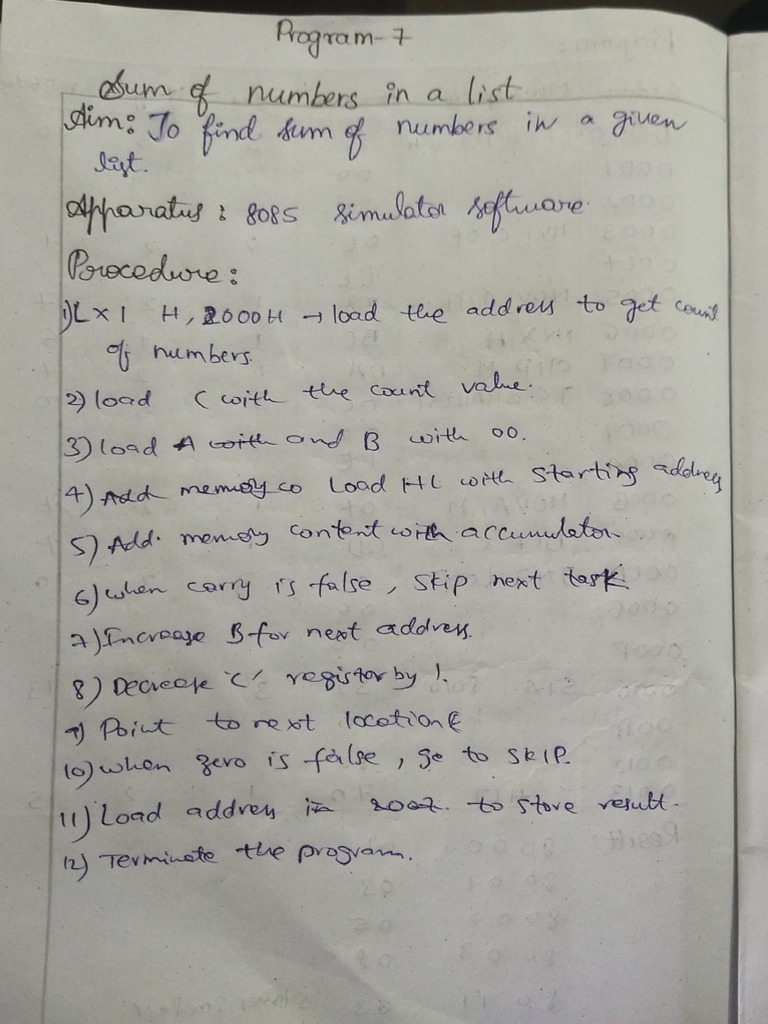 Program-7
Sum of numbers in a list
Aim: To find sum of numbers in a given
list.
Apparatus: 8085 simulator software.
Procedure:
1) LXI H, 2000H → load the address to get count
of numbers.
2) load C with the count value.
3) load A with and B with 00.
4) Add memory co Load HL with starting address
5) Add. memory content with accumulator.
6) when carry is false, skip next task
7) Increase B for next address.
8) Decrease 'C' register by 1.
9) Point to next location
10) when zero is false, go to SKIP.
11) Load address in 2007. to store result.
12) Terminate the program.